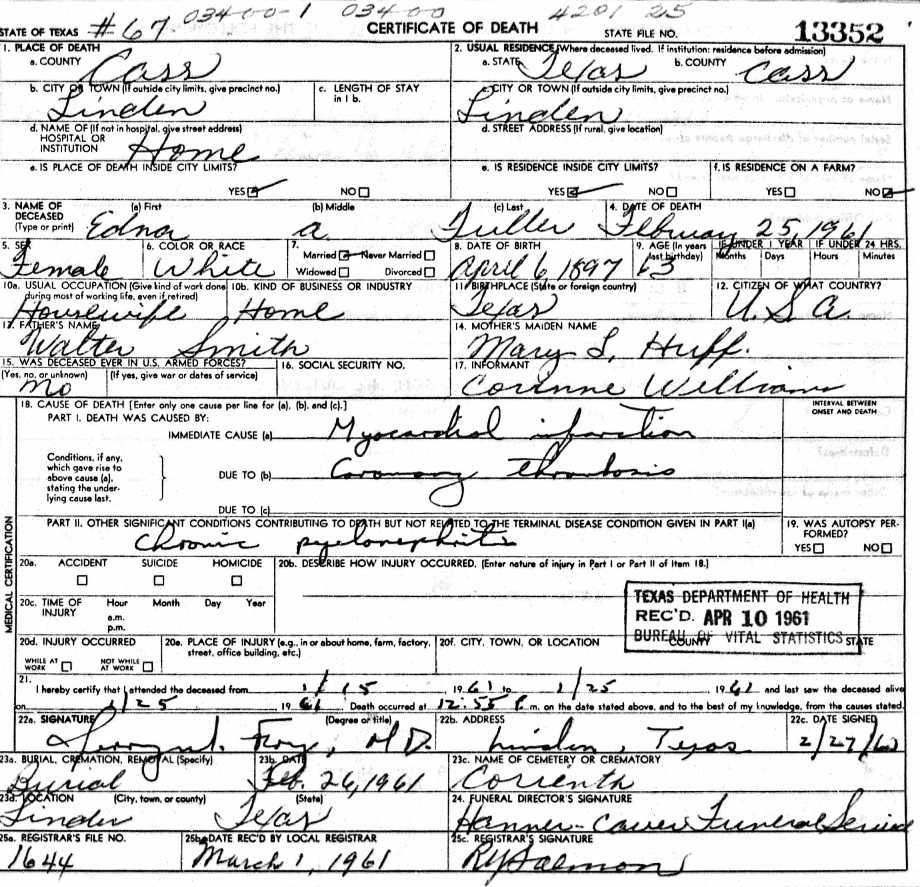 #67 03400-1 03400 4201 25
STATE OF TEXAS CERTIFICATE OF DEATH STATE FILE NO. 13352
1. PLACE OF DEATH 2. USUAL RESIDENCE (Where deceased lived. If institution: residence before admission)
a. COUNTY Cass a. STATE Texas b. COUNTY Cass
b. CITY OR TOWN (If outside city limits, give precinct no.) c. LENGTH OF STAY in 1 b. c. CITY OR TOWN (If outside city limits, give precinct no.)
Linden Linden
d. NAME OF (If not in hospital, give street address) HOSPITAL OR INSTITUTION Home d. STREET ADDRESS (If rural, give location)
e. IS PLACE OF DEATH INSIDE CITY LIMITS? e. IS RESIDENCE INSIDE CITY LIMITS? f. IS RESIDENCE ON A FARM?
YES NO YES NO YES NO
3. NAME OF DECEASED (Type or print) (a) First (b) Middle (c) Last 4. DATE OF DEATH
Edna a. Fuller February 25, 1961
5. SEX 6. COLOR OR RACE 7. Married Never Married Widowed Divorced 8. DATE OF BIRTH 9. AGE (In years last birthday) IF UNDER 1 YEAR Months Days IF UNDER 24 HRS. Hours Minutes
Female White April 6, 1897 63
10a. USUAL OCCUPATION (Give kind of work done during most of working life, even if retired) 10b. KIND OF BUSINESS OR INDUSTRY 11. BIRTHPLACE (State or foreign country) 12. CITIZEN OF WHAT COUNTRY?
Housewife Home Texas U.S.A.
13. FATHER'S NAME 14. MOTHER'S MAIDEN NAME
Walter Smith Mary L. Huff.
15. WAS DECEASED EVER IN U.S. ARMED FORCES? 16. SOCIAL SECURITY NO. 17. INFORMANT
(Yes, no, or unknown) (If yes, give war or dates of service)
no Corinne Williams
18. CAUSE OF DEATH [Enter only one cause per line for (a), (b), and (c).] INTERVAL BETWEEN ONSET AND DEATH
PART I. DEATH WAS CAUSED BY:
IMMEDIATE CAUSE (a) Myocardial infarction
Conditions, if any, which gave rise to above cause (a), stating the underlying cause last.
DUE TO (b) Coronary thrombosis
DUE TO (c)
PART II. OTHER SIGNIFICANT CONDITIONS CONTRIBUTING TO DEATH BUT NOT RELATED TO THE TERMINAL DISEASE CONDITION GIVEN IN PART I(a) 19. WAS AUTOPSY PERFORMED?
Chronic pyelonephritis YES NO
MEDICAL CERTIFICATION
20a. ACCIDENT SUICIDE HOMICIDE 20b. DESCRIBE HOW INJURY OCCURRED. (Enter nature of injury in Part I or Part II of Item 18.)
20c. TIME OF INJURY Hour a.m. p.m. Month Day Year
TEXAS DEPARTMENT OF HEALTH
REC'D. APR 10 1961
BUREAU OF VITAL STATISTICS
20d. INJURY OCCURRED WHILE AT WORK NOT WHILE AT WORK 20e. PLACE OF INJURY (e.g., in or about home, farm, factory, street, office building, etc.) 20f. CITY, TOWN, OR LOCATION COUNTY STATE
21. I hereby certify that I attended the deceased from 1/15 1961 to 1/25 1961 and last saw the deceased alive
on 1/25 1961 Death occurred at 12:55 P. m. on the date stated above, and to the best of my knowledge, from the causes stated.
22a. SIGNATURE (Degree or title) 22b. ADDRESS 22c. DATE SIGNED
M.D. Linden, Texas 2/27/61
23a. BURIAL, CREMATION, REMOVAL (Specify) 23b. DATE 23c. NAME OF CEMETERY OR CREMATORY
Burial Feb. 26, 1961 Correnth
23d. LOCATION (City, town, or county) (State) 24. FUNERAL DIRECTOR'S SIGNATURE
Linden Texas Hanner-Caver Funeral Service
25a. REGISTRAR'S FILE NO. 25b. DATE REC'D BY LOCAL REGISTRAR 25c. REGISTRAR'S SIGNATURE
1644 March 1, 1961 Salmon